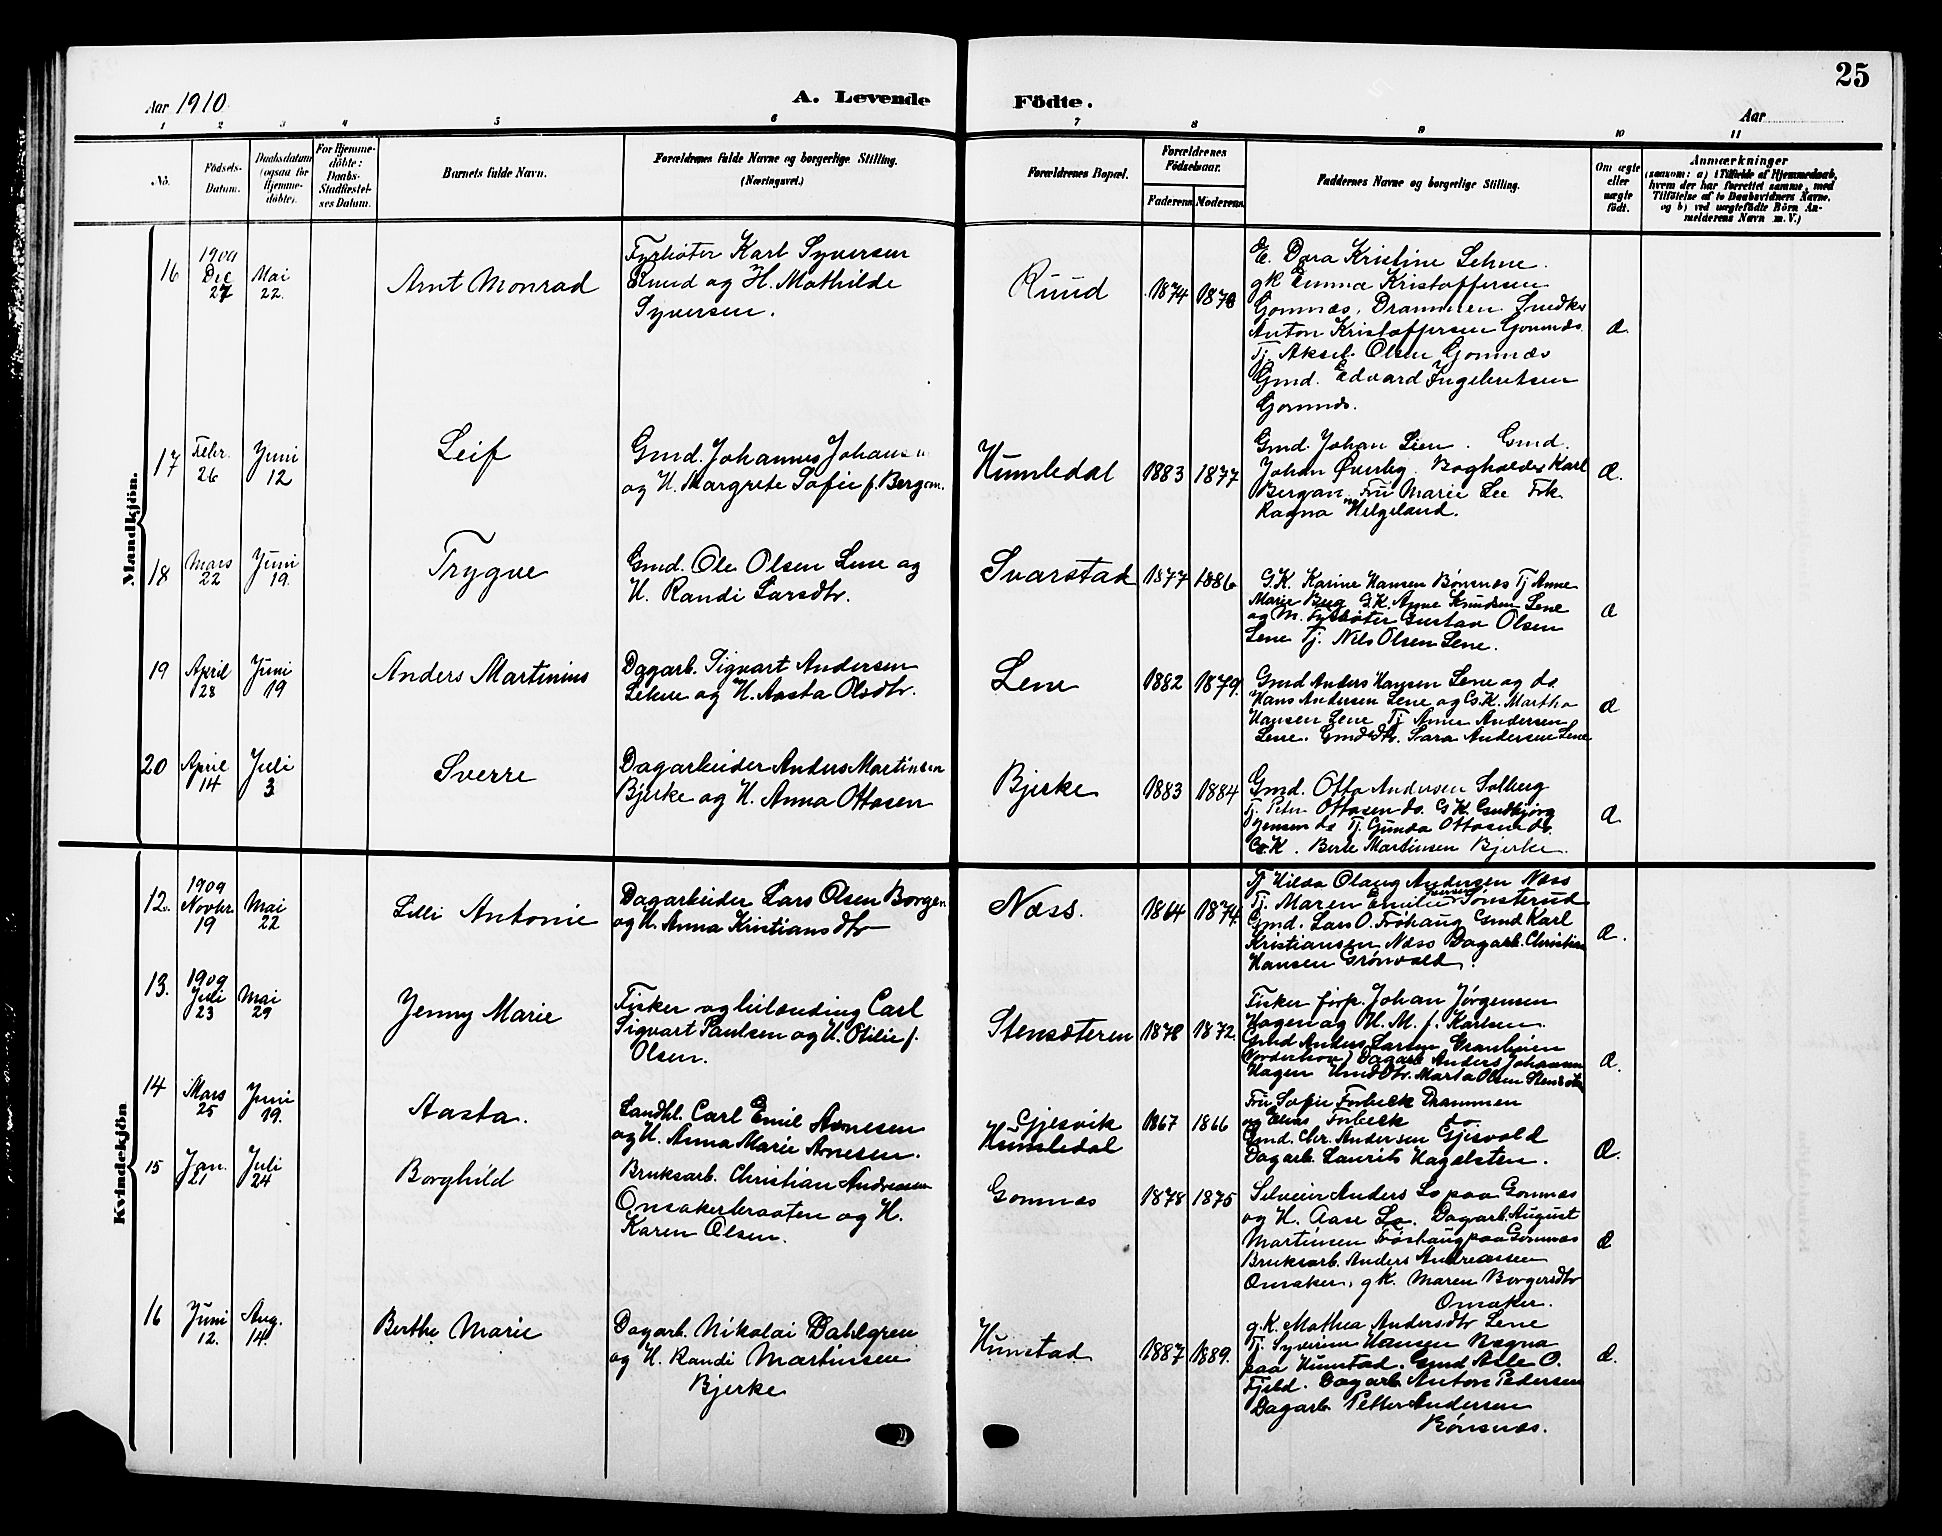 25
Aar 1910.
A. Levende Födte.
Aar
1 2 3 4 5 6 7 8 9 10 11
No.
Födsels-Datum.
Daabsdatum (ogsaa for Hjemme-döbte).
For Hjemme-döbte: Daabs-Stadfæstel-ses Datum.
Barnets fulde Navn.
Forældrenes fulde Navne og borgerlige Stilling.
(Næringsvei.)
Forældrenes Bopæl.
Forældrenes Födselsaar.
Faderens Moderens
Faddernes Navne og borgerlige Stilling.
Om ægte eller uægte födt.
Anmærkninger
(saasom: a) i Tilfælde af Hjemmedaab,
hvem der har forrettet samme, med
Tilföielse af to Daabsvidners Navne.
og b) ved uægtefödte Börn An-
melderens Navn m. V.)
Mandkjön.
16
1909 Dec 27
Mai 22.
Arnt Monrad
Fyrbøter Karl Syversen
Ruud og H. Mathilde
Syversen.
Ruud
1874 1878
E. Dora Kristine Lehne.
gK Emma Kristoffersen
Gomnæs, Drammen. Snedker
Anton Kristoffersen Gomnæs
Tj. Aksel Olsen Gomnæs
Gmd. Edvard Ingebretsen
Gomnæs.
Æ.
17
Febr. 26
Juni 12
Leif
Gmd. Johannes Johansen
og H. Margrete Sofie f. Bergan.
Humledal
1883 1877
Gmd. Johan Lien. Gmd.
Johan Øverby. Bogholder Karl
Bergan. Fru Marie Lee Frk.
Ragna Helgeland.
Æ.
18
Mars 22
Juni 19.
Trygve
Gmd. Ole Olsen Lene og
H. Randi Larsdtr.
Svarstad
1877 1886
G.K. Karine Hansen Bønsnæs Tj Anne
Marie Bye G.K. Anne Knudsen Lene
og M. Fyrbøter Gustav Olsen
Lene Tj. Nils Olsen Lene.
Æ
19
April 28
Juni 19
Anders Martinius
Dagarb. Sigvart Andersen
Lehne og H. Aasta Olsdtr.
Lene
1882 1879.
Gmd Anders Hansen Lene og do
Hans Andersen Lene og G.K. Martha
Hansen Lene Tj Anna Andersen
Lene. Gmdsdtr. Sara Andersen Lene
Æ
20
April 14
Juli 3.
Sverre
Dagarbeider Anders Martinsen
Bjerke og H. Anna Ottosen
Bjerke
1883 1884
Gmd. Otto Andersen Solberg
Tj. Peter Ottosen do. G.K. Gudbjørg
Jensen do Tj. Gunda Ottosen do.
G.K. Berte Martinsen Bjerke.
Æ
Kvindekjön
12.
1909 Novbr 19
Mai 22
Lilli Antonie
Dagarbeider Lars Olsen Borgen
og H. Anna Kristiansdtr
Næss.
1864 1874.
Tj Hilda Olaug Andersen Næss
Tj. Maren Emilie Iversen Tønsterud
Gmd. Lars O. Frøhaug Gmd Karl
Kristiansen Næss Dagarb. Christian
Hansen Grønvold.
Æ.
13.
1909 Juli 23
Mai 29
Jenny Marie
Fisker og utlænding Carl
Sigvart Paulsen og H. Otilie f.
Olsen.
Stensæteren
1878 1872.
Fisker forp. Johan Jørgensen
Hagen og H. M. f. Karlsen.
Gmd Anders Larsen Granlien
(Norderhov) Dagarb Anders Johansen
Hagen Hmd Dtr. Marta Olsen Stensæter
Æ.
14
Mars 25
Juni 19.
Aasta.
Landhl. Carl Emil Arnesen
og H. Anna Marie Arnesen.
Gjesvik
Humledal
1867 1866
Fru Sofie Forbeck Drammen
og Elias Forbeck do.
Gmd. Chr. Andersen Gjesvold
Dagarb. Laurits Hagelsten.
Æ.
15
Jan. 21
Juli 24
Borghild
Bruksarb. Christian Andreasen
Onsakerbraaten og H.
Karen Olsen.
Gomnæs
1878 1875
Selveier Anders Lo paa Gomnæs
og H. Aase Lo. Dagarb. August
Martinsen Frøshaug paa Gomnæs
Bruksarb. Anders Andreassen
Onsaker, gK. Maren Borgersdtr
Onsaker.
Æ
16
Juni 12.
Aug. 14.
Berthe Marie
Dagarb. Nikolai Dahlgren
og H. Randi Martinsen
Bjerke
Hunstad
1887 1889.
g.K. Mathea Andersdtr Lene
Tj. Syverine Hansen Ragna
paa Hunstad. Gmd Asle O.
Fjeld. Dagarb. Anton Pedersen
Dagarb. Petter Andersen
Bønsnæs.
Æ.